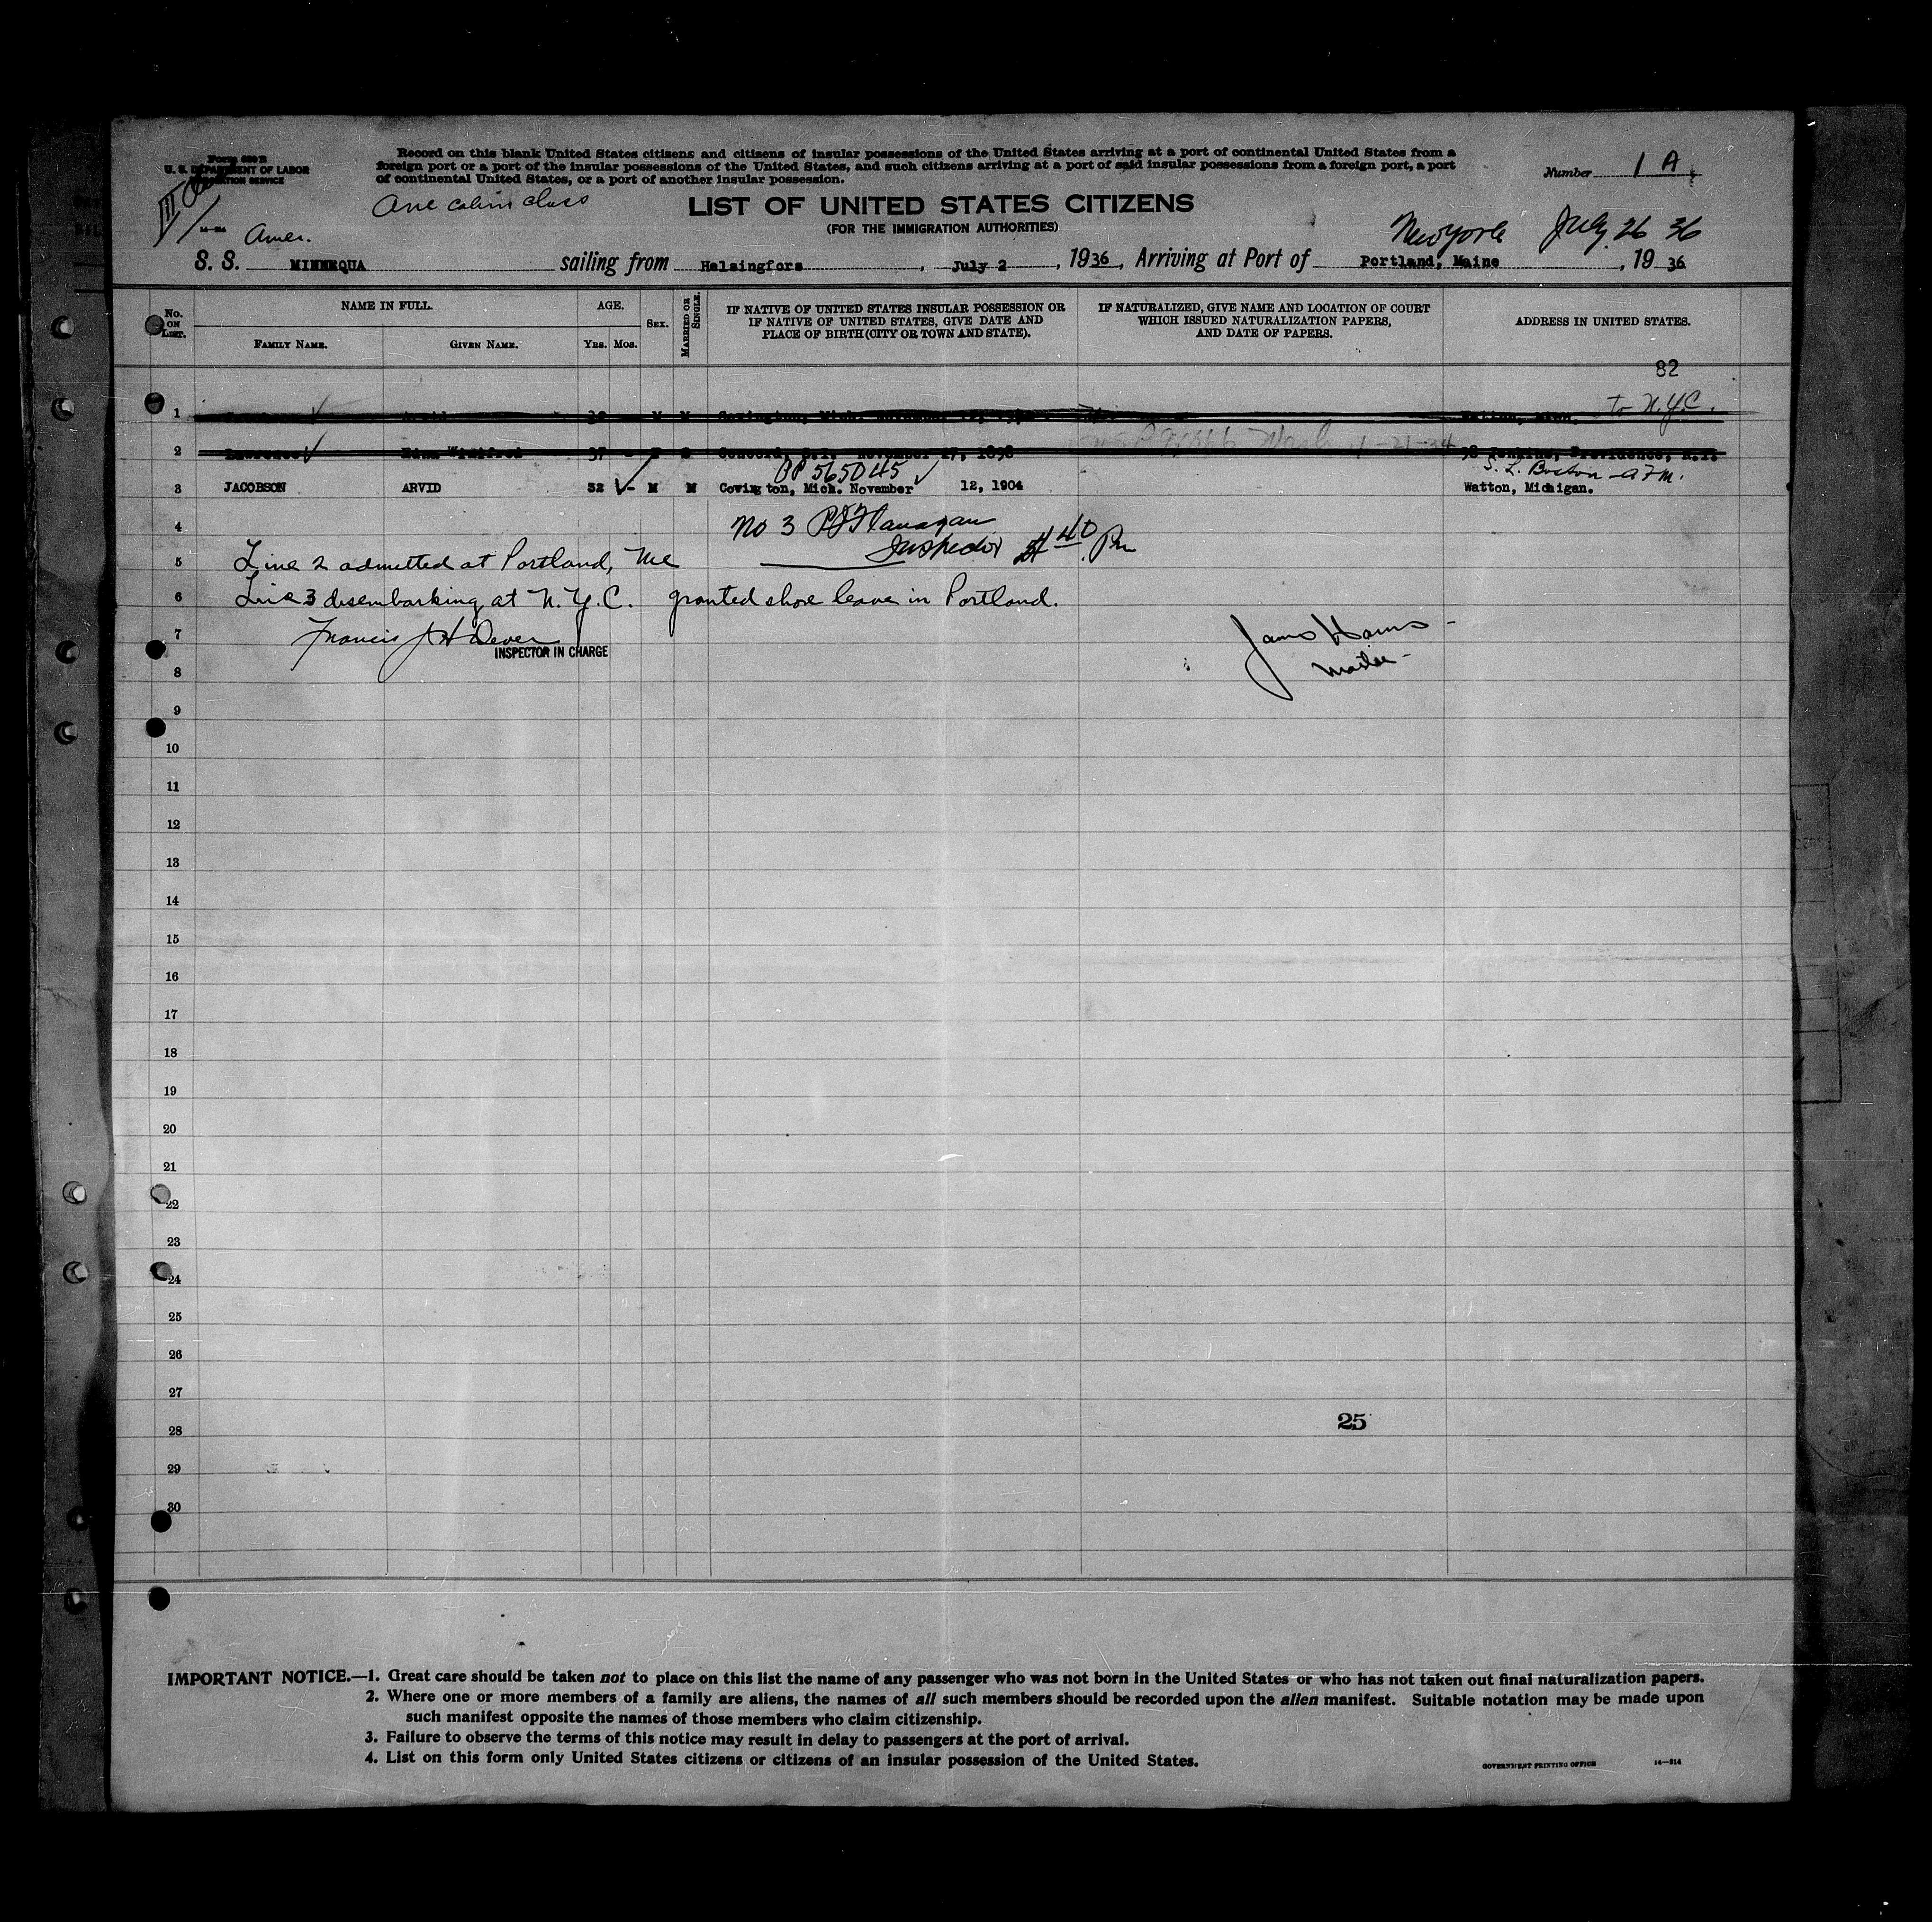 Form 630 B
U. S. DEPARTMENT OF LABOR
IMMIGRATION SERVICE
Record on this blank United States citizens and citizens of insular possessions of the United States arriving at a port of continental United States from a
foreign port or a port of the insular possessions of the United States, and such citizens arriving at a port of said insular possessions from a foreign port, a port
of continental United States, or a port of another insular possession.
Number 1 A
One cabin class
LIST OF UNITED STATES CITIZENS
(FOR THE IMMIGRATION AUTHORITIES)
Amer.
New York July 26 36
S. S. MINNEQUA sailing from Helsingfors, July 2, 1936, Arriving at Port of Portland, Maine, 19 36
No. ON LIST. NAME IN FULL. FAMILY NAME. GIVEN NAME. AGE. YRS. MOS. SEX. MARRIED OR SINGLE. IF NATIVE OF UNITED STATES INSULAR POSSESSION OR IF NATIVE OF UNITED STATES, GIVE DATE AND PLACE OF BIRTH (CITY OR TOWN AND STATE). IF NATURALIZED, GIVE NAME AND LOCATION OF COURT WHICH ISSUED NATURALIZATION PAPERS, AND DATE OF PAPERS. ADDRESS IN UNITED STATES.
82
1 M M Covington, Mich. to N.Y.C.
2 Lawrence Edna Winifred 37 - F S November 27, 1898 Wash 98 Jenkins, Providence, R.I.
PP 565045 S. L. Boston
3 JACOBSON ARVID 32 - M M Covington, Mich. November 12, 1904 Watton, Michigan.
4 No 3 P J Flanagan
Inspector 40 Pm
5 Line 2 admitted at Portland, Me
6 Line 3 disembarking at N.Y.C. granted shore leave in Portland.
7 Francis J H Dever
INSPECTOR IN CHARGE
8
9
10
11
12
13
14
15
16
17
18
19
20
21
22
23
24
25
26
27
25
28
29
30
IMPORTANT NOTICE.—1. Great care should be taken not to place on this list the name of any passenger who was not born in the United States or who has not taken out final naturalization papers.
2. Where one or more members of a family are aliens, the names of all such members should be recorded upon the alien manifest. Suitable notation may be made upon
such manifest opposite the names of those members who claim citizenship.
3. Failure to observe the terms of this notice may result in delay to passengers at the port of arrival.
4. List on this form only United States citizens or citizens of an insular possession of the United States.
GOVERNMENT PRINTING OFFICE 14—214